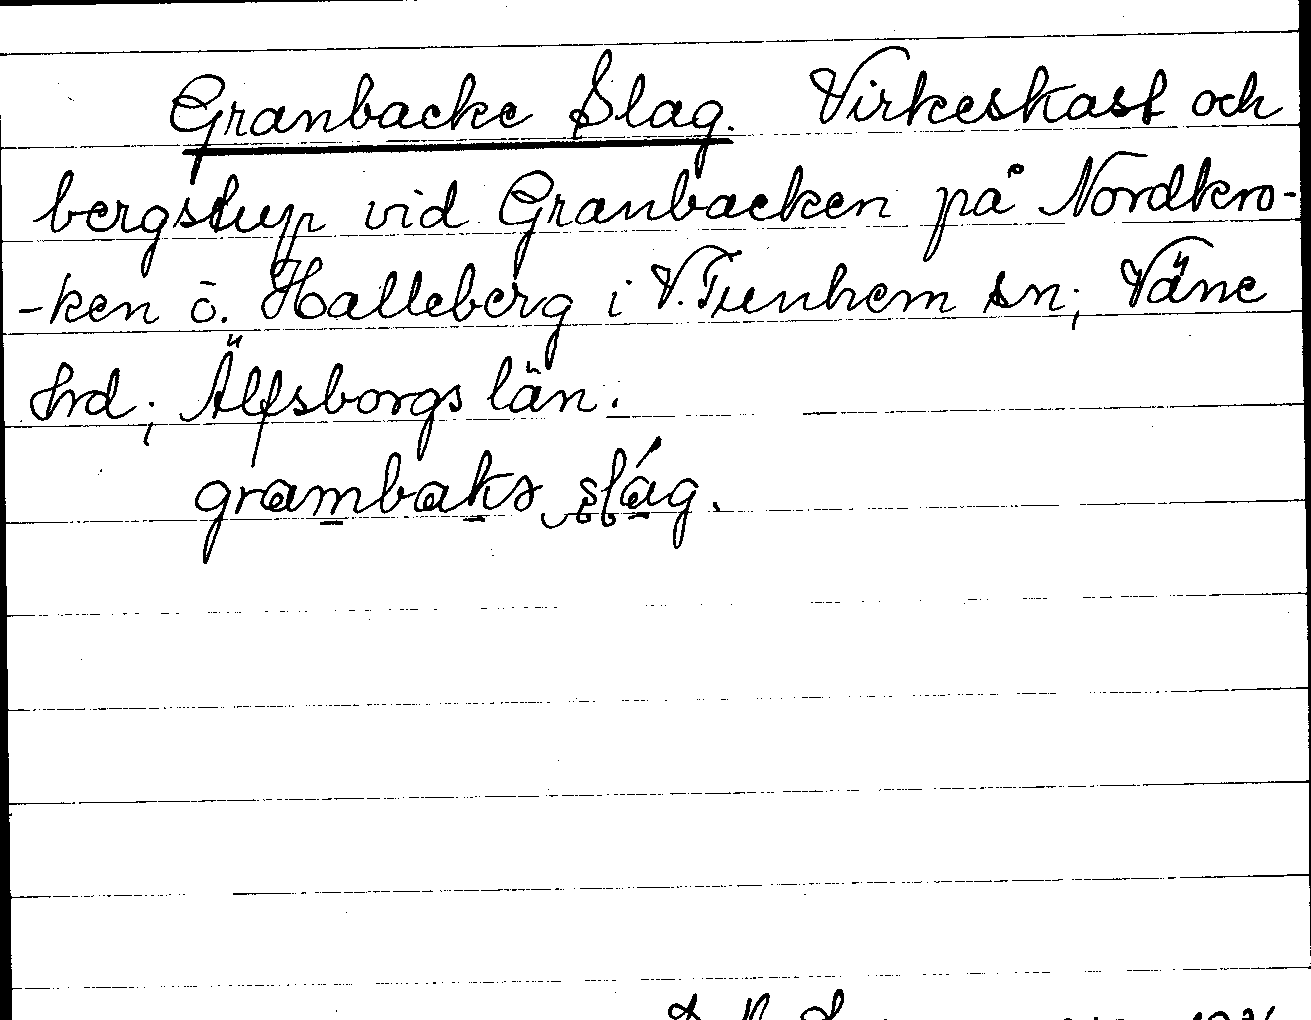 Granbacke Slag. Virkeskast och
bergstup vid Granbacken på Nordkro-
-ken ö. Halleberg i V. Tunhem sn; Väne
hrd; Älfsborgs län.
grambaks slág.